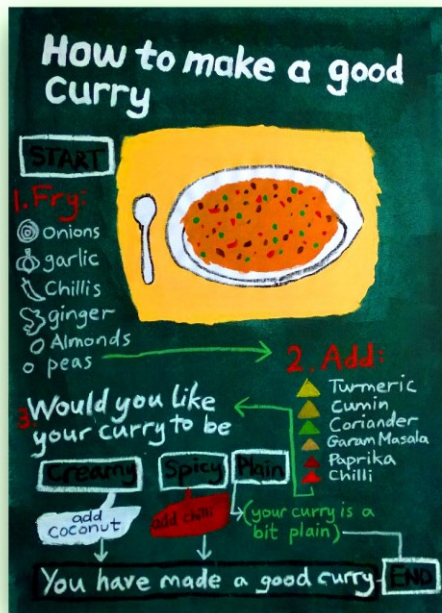 How to make a good
curry
START
1. Fry:
Onions
garlic
Chillis
ginger
Almonds
peas
2. Add:
Turmeric
Cumin
Coriander
Garam Masala
Paprika
Chilli
3. Would you like
your curry to be
Creamy
Spicy
Plain
add
coconut
add chilli
(your curry is a
bit plain)
You have made a good curry
END